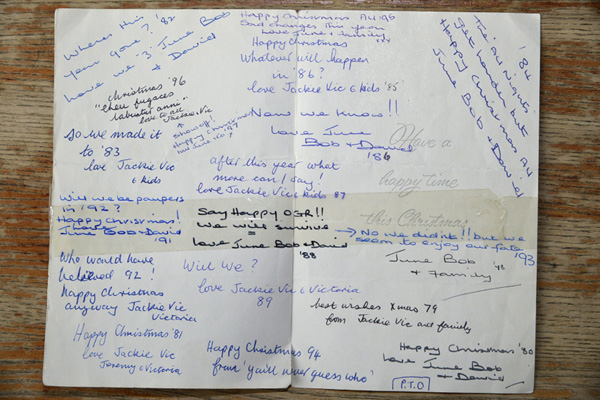 Where has
year gone? '82
Love we '3' June Bob
& David
Christmas '96
"eheu fugaces
labuntur anni"
love to all
Jackie Vic
↑
show off!
Happy Christmas
love June '97
So we made it
to '83
love Jackie Vic
& kids
Will we be paupers
in 1992?
Happy Christmas!
love
June Bob & David
'91
Who would have
believed 92!
happy Christmas
anyway Jackie Vic
Victoria
Happy Christmas '81
love Jackie Vic
Jeremy & Victoria
Happy Christmas All '96
Sad changes this year
love June & family
Happy Christmas
Whatever will happen
in '86?
love Jackie Vic & kids '85'
Now we know!!
love June
Bob & David
'86
after this year what
more can I say!
love Jackie Vic & kids 87
Say Happy OSR!!
We will survive
love June Bob & David
'88
Will we?
love Jackie Vic & Victoria
89
Happy Christmas 94
from 'you'll never guess who'
The '84
nights
get harder but
Happy Christmas All
June Bob & David
Have a
happy time
this Christmas
→ No we didn't!! but we
seem to enjoy our fate '93
June Bob
& Family
best wishes Xmas 79
from Jackie Vic and family
Happy Christmas '80
love June Bob
& David
P.T.O